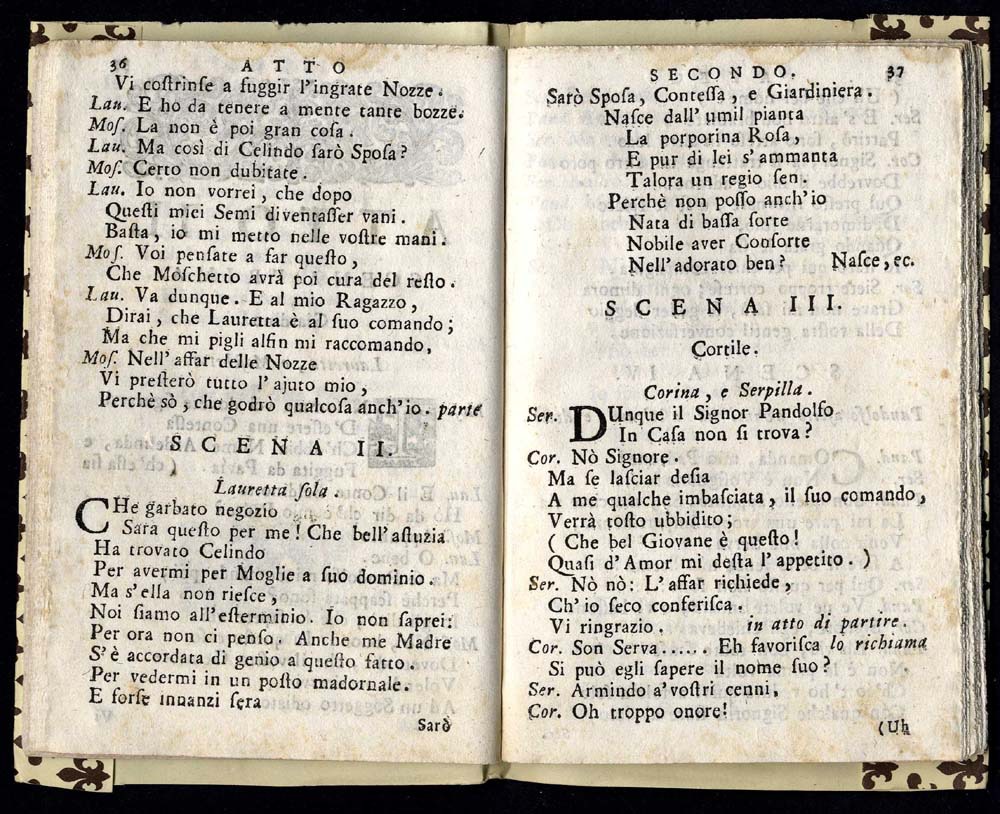 36 ATTO
Vi coſtrinſe a fuggir l'ingrate Nozze.
Lau. E ho da tenere a mente tante bozze.
Moſ. La non è poi gran coſa.
Lau. Ma così di Celindo ſarò Spoſa?
Moſ. Certo non dubitate.
Lau. Io non vorrei, che dopo
Queſti miei Semi diventaſſer vani.
Baſta, io mi metto nelle voſtre mani.
Moſ. Voi penſate a far queſto,
Che Moſchetto avrà poi cura del reſto.
Lau. Va dunque. E al mio Ragazzo,
Dirai, che Lauretta è al ſuo comando;
Ma che mi pigli alfin mi raccomando,
Moſ. Nell'affar delle Nozze
Vi preſterò tutto l'ajuto mio,
Perchè sò, che godrò qualcoſa anch'io. parte
SCENA II.
Lauretta ſola.
CHe garbato negozio
Sara queſto per me! Che bell'aſtuzia
Ha trovato Celindo
Per avermi per Moglie a ſuo dominio.
Ma s'ella non rieſce,
Noi ſiamo all'eſterminio. Io non ſaprei:
Per ora non ci penſo. Anche me Madre
S'è accordata di genio a queſto fatto.
Per vedermi in un poſto madornale.
E forſe innanzi ſera
Sarò
SECONDO. 37
Sarò Spoſa, Conteſſa, e Giardiniera.
Naſce dall'umil pianta
La porporina Roſa,
E pur di lei s'ammanta
Talora un regio ſen.
Perchè non poſſo anch'io
Nata di baſſa ſorte
Nobile aver Conſorte
Nell'adorato ben? Naſce, ec.
SCENA III.
Cortile.
Corina, e Serpilla.
Ser. DUnque il Signor Pandolfo
In Caſa non ſi trova?
Cor. Nò Signore.
Ma ſe laſciar deſia
A me qualche imbaſciata, il ſuo comando,
Verrà toſto ubbidito;
( Che bel Giovane è queſto!
Quaſi d'Amor mi deſta l'appetito. )
Ser. Nò nò: L'affar richiede,
Ch'io ſeco conferiſca.
Vi ringrazio. in atto di partire.
Cor. Son Serva...... Eh favoriſca lo richiama
Si può egli ſapere il nome ſuo?
Ser. Armindo a'voſtri cenni,
Cor. Oh troppo onore!
(Uh